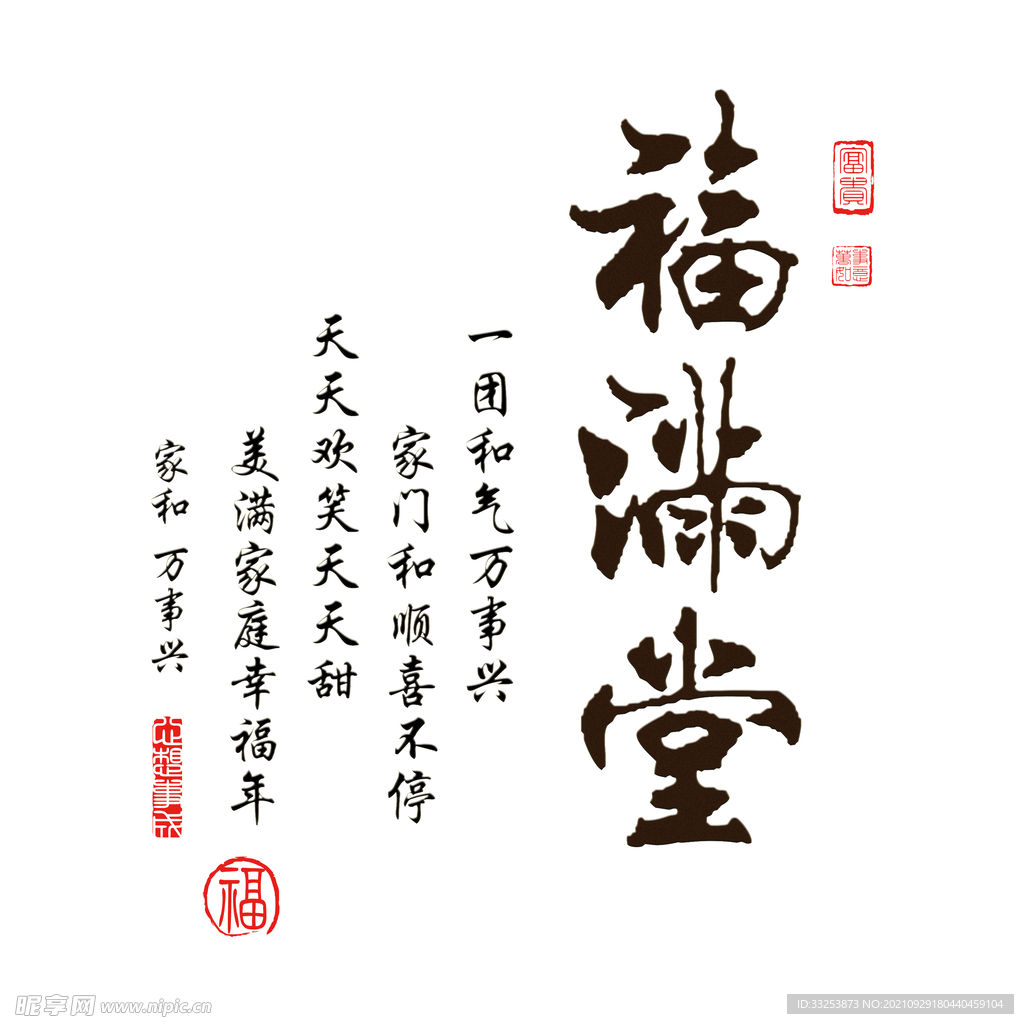 富貴
萬事如意
福满堂
一团和气万事兴
家门和顺喜不停
天天欢笑天天甜
美满家庭幸福年
家和 万事兴
心想事成
福
昵享网 www.nipic.cn
ID:33253873 NO:20210929180440459104